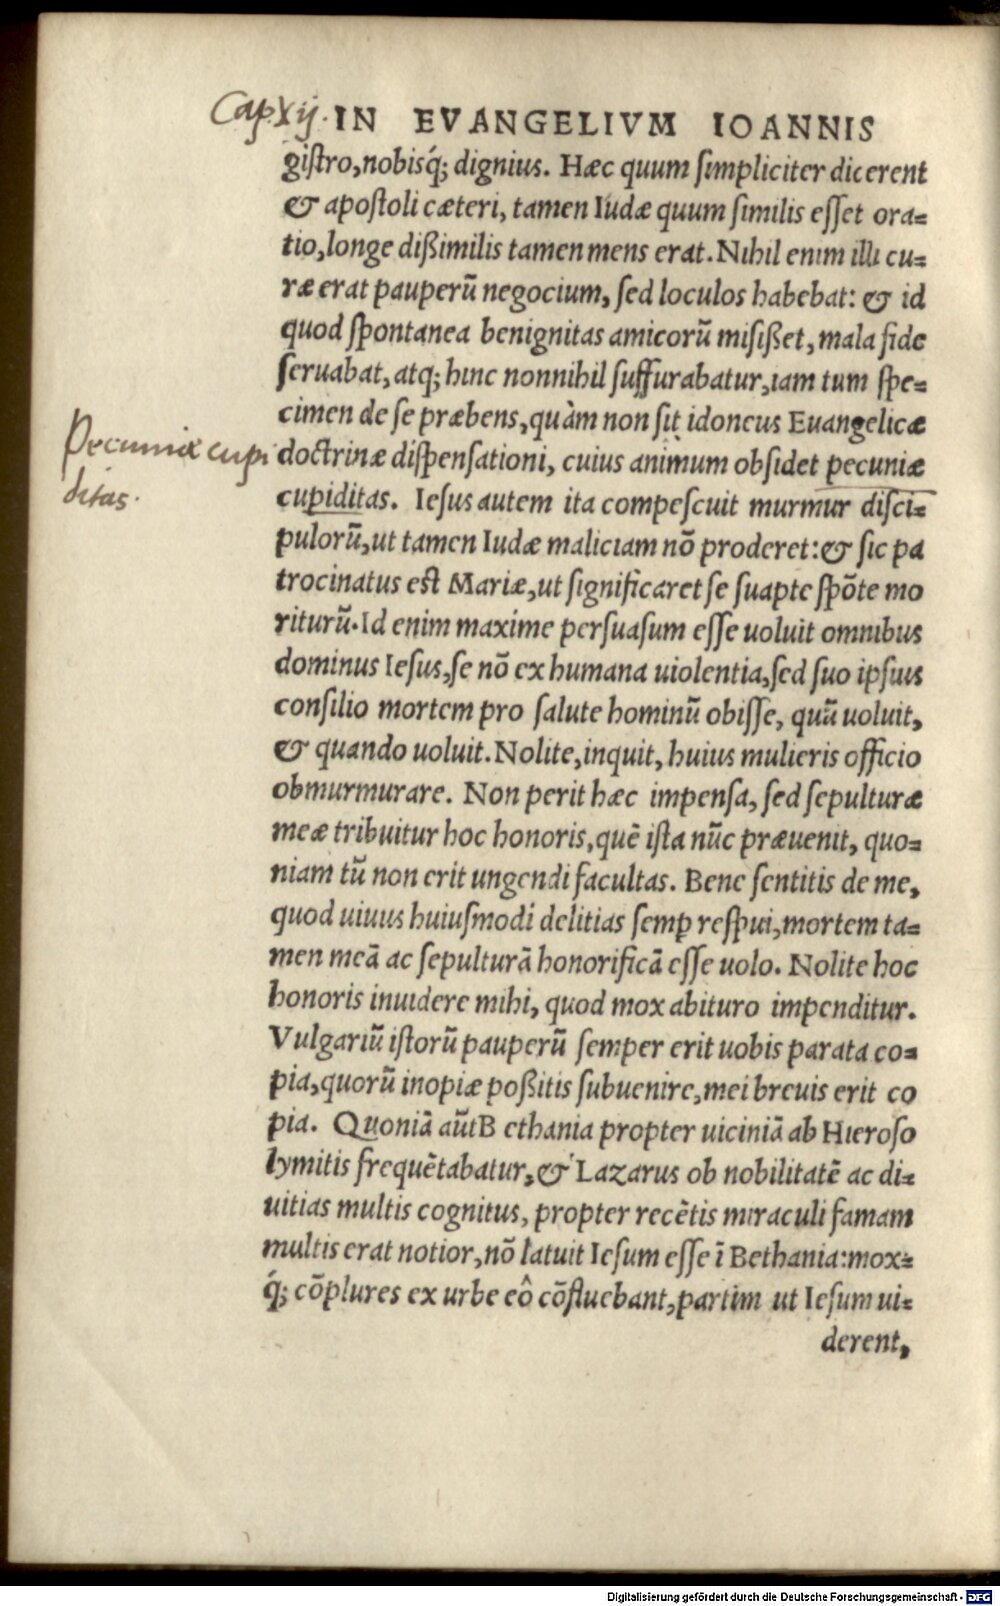 Cap Xij. IN EVANGELIVM IOANNIS
gistro, nobisq́; dignius. Hæc quum simpliciter dicerent
& apostoli cæteri, tamen Iudæ quum similis esset ora=
tio, longe dißimilis tamen mens erat. Nihil enim illi cu=
ræ erat pauperũ negocium, sed loculos habebat: & id
quod spontanea benignitas amicorũ misißet, mala fide
seruabat, atq; hinc nonnihil suffurabatur, iam tum spe=
cimen de se præbens, quàm non sit idoneus Euangelicæ
Pecuniæ cupi
ditas.
doctrinæ dispensationi, cuius animum obsidet pecuniæ
cupiditas. Iesus autem ita compescuit murmur disci=
pulorũ, ut tamen Iudæ maliciam nõ proderet: & sic pa
trocinatus est Mariæ, ut significaret se suapte spõte mo
riturũ. Id enim maxime persuasum esse uoluit omnibus
dominus Iesus, se nõ ex humana uiolentia, sed suo ipsius
consilio mortem pro salute hominũ obisse, quũ uoluit,
& quando uoluit. Nolite, inquit, huius mulieris officio
obmurmurare. Non perit hæc impensa, sed sepulturæ
meæ tribuitur hoc honoris, quẽ ista nũc præuenit, quo=
niam tũ non erit ungendi facultas. Bene sentitis de me,
quod uiuus huiusmodi delitias semp respui, mortem ta=
men meã ac sepulturã honorificã esse uolo. Nolite hoc
honoris inuidere mihi, quod mox abituro impenditur.
Vulgariũ istorũ pauperũ semper erit uobis parata co=
pia, quorũ inopiæ poßitis subuenire, mei breuis erit co
pia. Quoniã aũt Bethania propter uiciniã ab Hieroso
lymitis frequẽtabatur, & Lazarus ob nobilitatẽ ac di=
uitias multis cognitus, propter recẽtis miraculi famam
multis erat notior, nõ latuit Iesum esse ĩ Bethania: mox=
q́; cõplures ex urbe eô cõfluebant, partim ut Iesum ui=
derent,
Digitalisierung gefördert durch die Deutsche Forschungsgemeinschaft - DFG